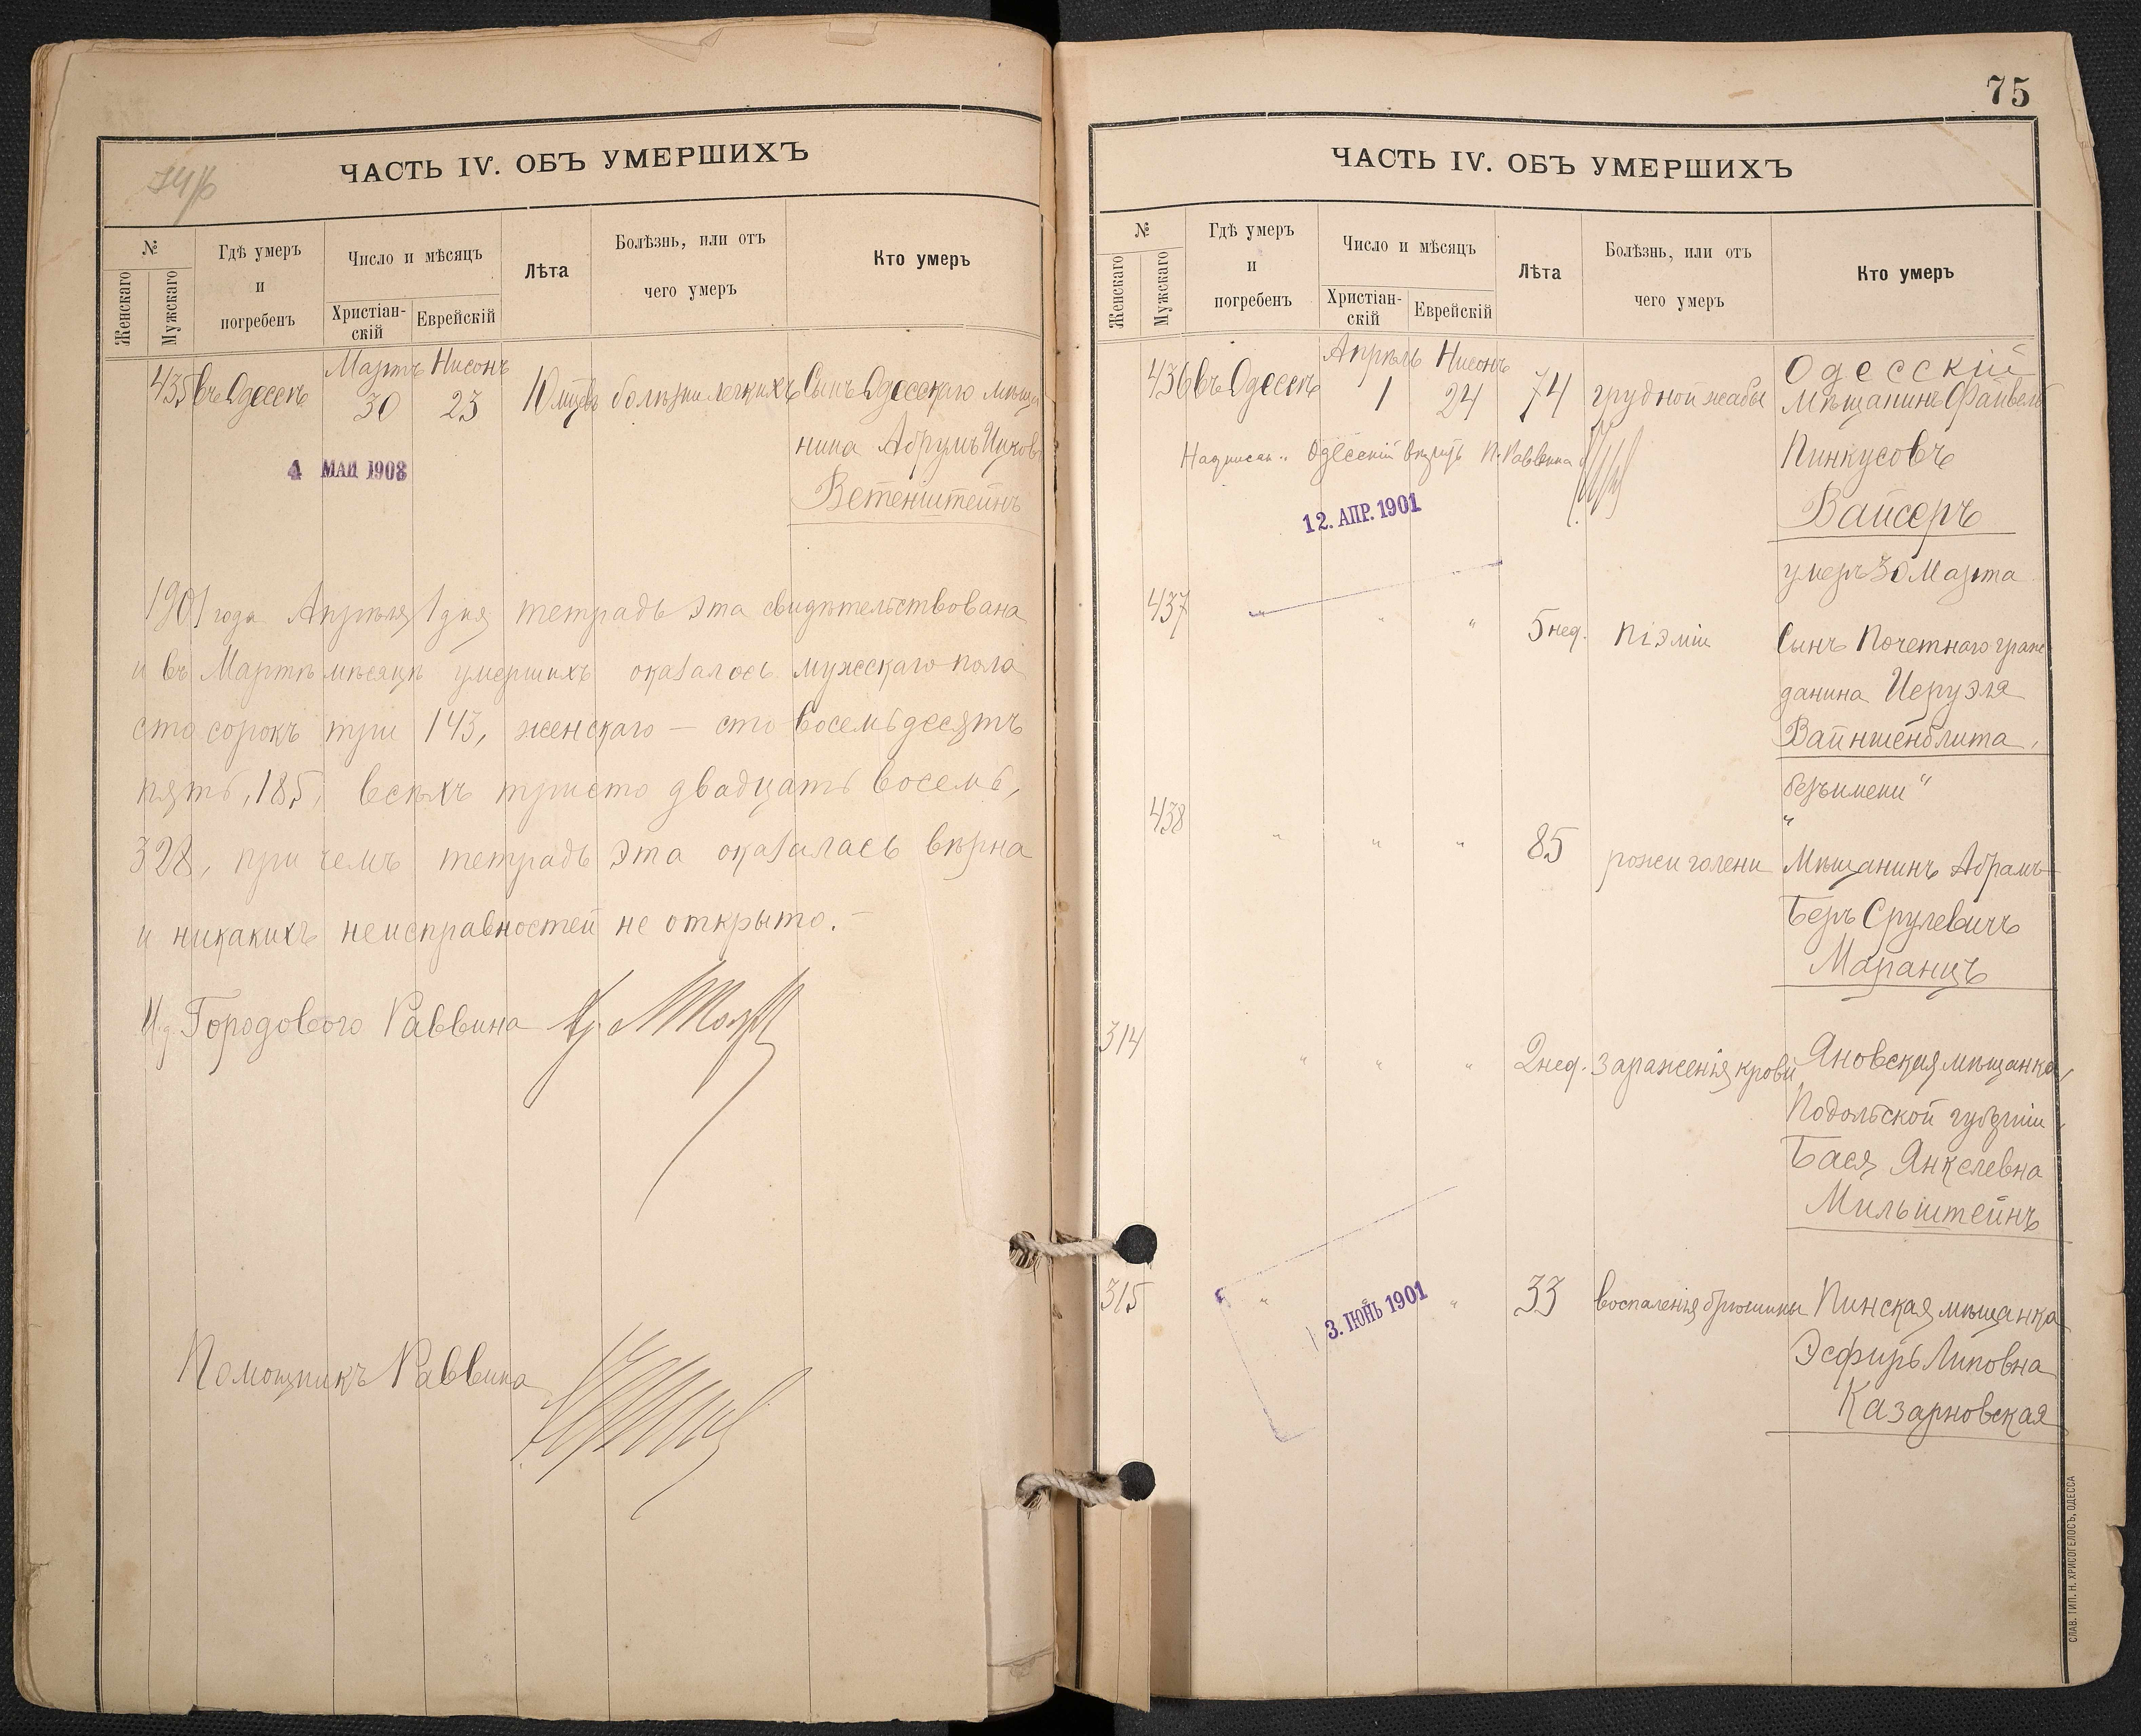 ЧАСТЬ IV. ОБЪ УМЕРШИХЪ
№
Женскаго
Мужскаго
Гдѣ умеръ
и
погребенъ
Число и мѣсяцъ
Христіан-
скій
Еврейскій
Лѣта
Болѣзнь, или отъ
чего умеръ
Кто умеръ
Мартъ Нисонъ
435 въ Одессѣ 30 23 10 мцевъ болѣзни легкихъ Сынъ Одесскаго мѣща
нина Абрумъ
4 МАЙ 1903
Ветенштейнъ
1901 года Апрѣля 1 дня тетрадь эта свидѣтельствована
и въ Мартѣ мѣсяцѣ умершихъ оказалось мужскаго пола
сто сорокъ три 143, женскаго — сто восемьдесятъ
пять, 185, всѣхъ тристо двадцать восемь,
328, при чемъ тетрадь эта оказалась вѣрна
и никакихъ неисправностей не открыто. —
И.д. Городового Раввина
Помощникъ Раввина
75
ЧАСТЬ IV. ОБЪ УМЕРШИХЪ
№
Женскаго
Мужскаго
Гдѣ умеръ
и
погребенъ
Число и мѣсяцъ
Христіан-
скій
Еврейскій
Лѣта
Болѣзнь, или отъ
чего умеръ
Кто умеръ
Апрѣль Нисонъ Одесскій
436 въ Одессѣ 1 24 74 грудной жабы Мѣщанинъ Файвель
Одесскій П. Раввина
Пинкусовъ
12. АПР. 1901
Вайсеръ
умеръ 30 Марта
437 " " " 5 нед. піэміи Сынъ Почетнаго граж
данина Иеруэля
Вайншенблита,
безъ имени "
438 " " " 85 рожи голени Мѣщанинъ Абрамъ-
Беръ Срулевичъ
Маранцъ
314 " " " 2 нед. зараженія крови Яновская мѣщанка,
Подольской губерніи,
Бася Янкелевна
Мильштейнъ
315 " " 33 воспаленія брюшины Пинская мѣщанка
3. ІЮНЬ 1901
Эсфирь Липовна
Казарновская
СЛАВ. ТИП. Н. ХРИСОГЕЛОСЪ, ОДЕССА